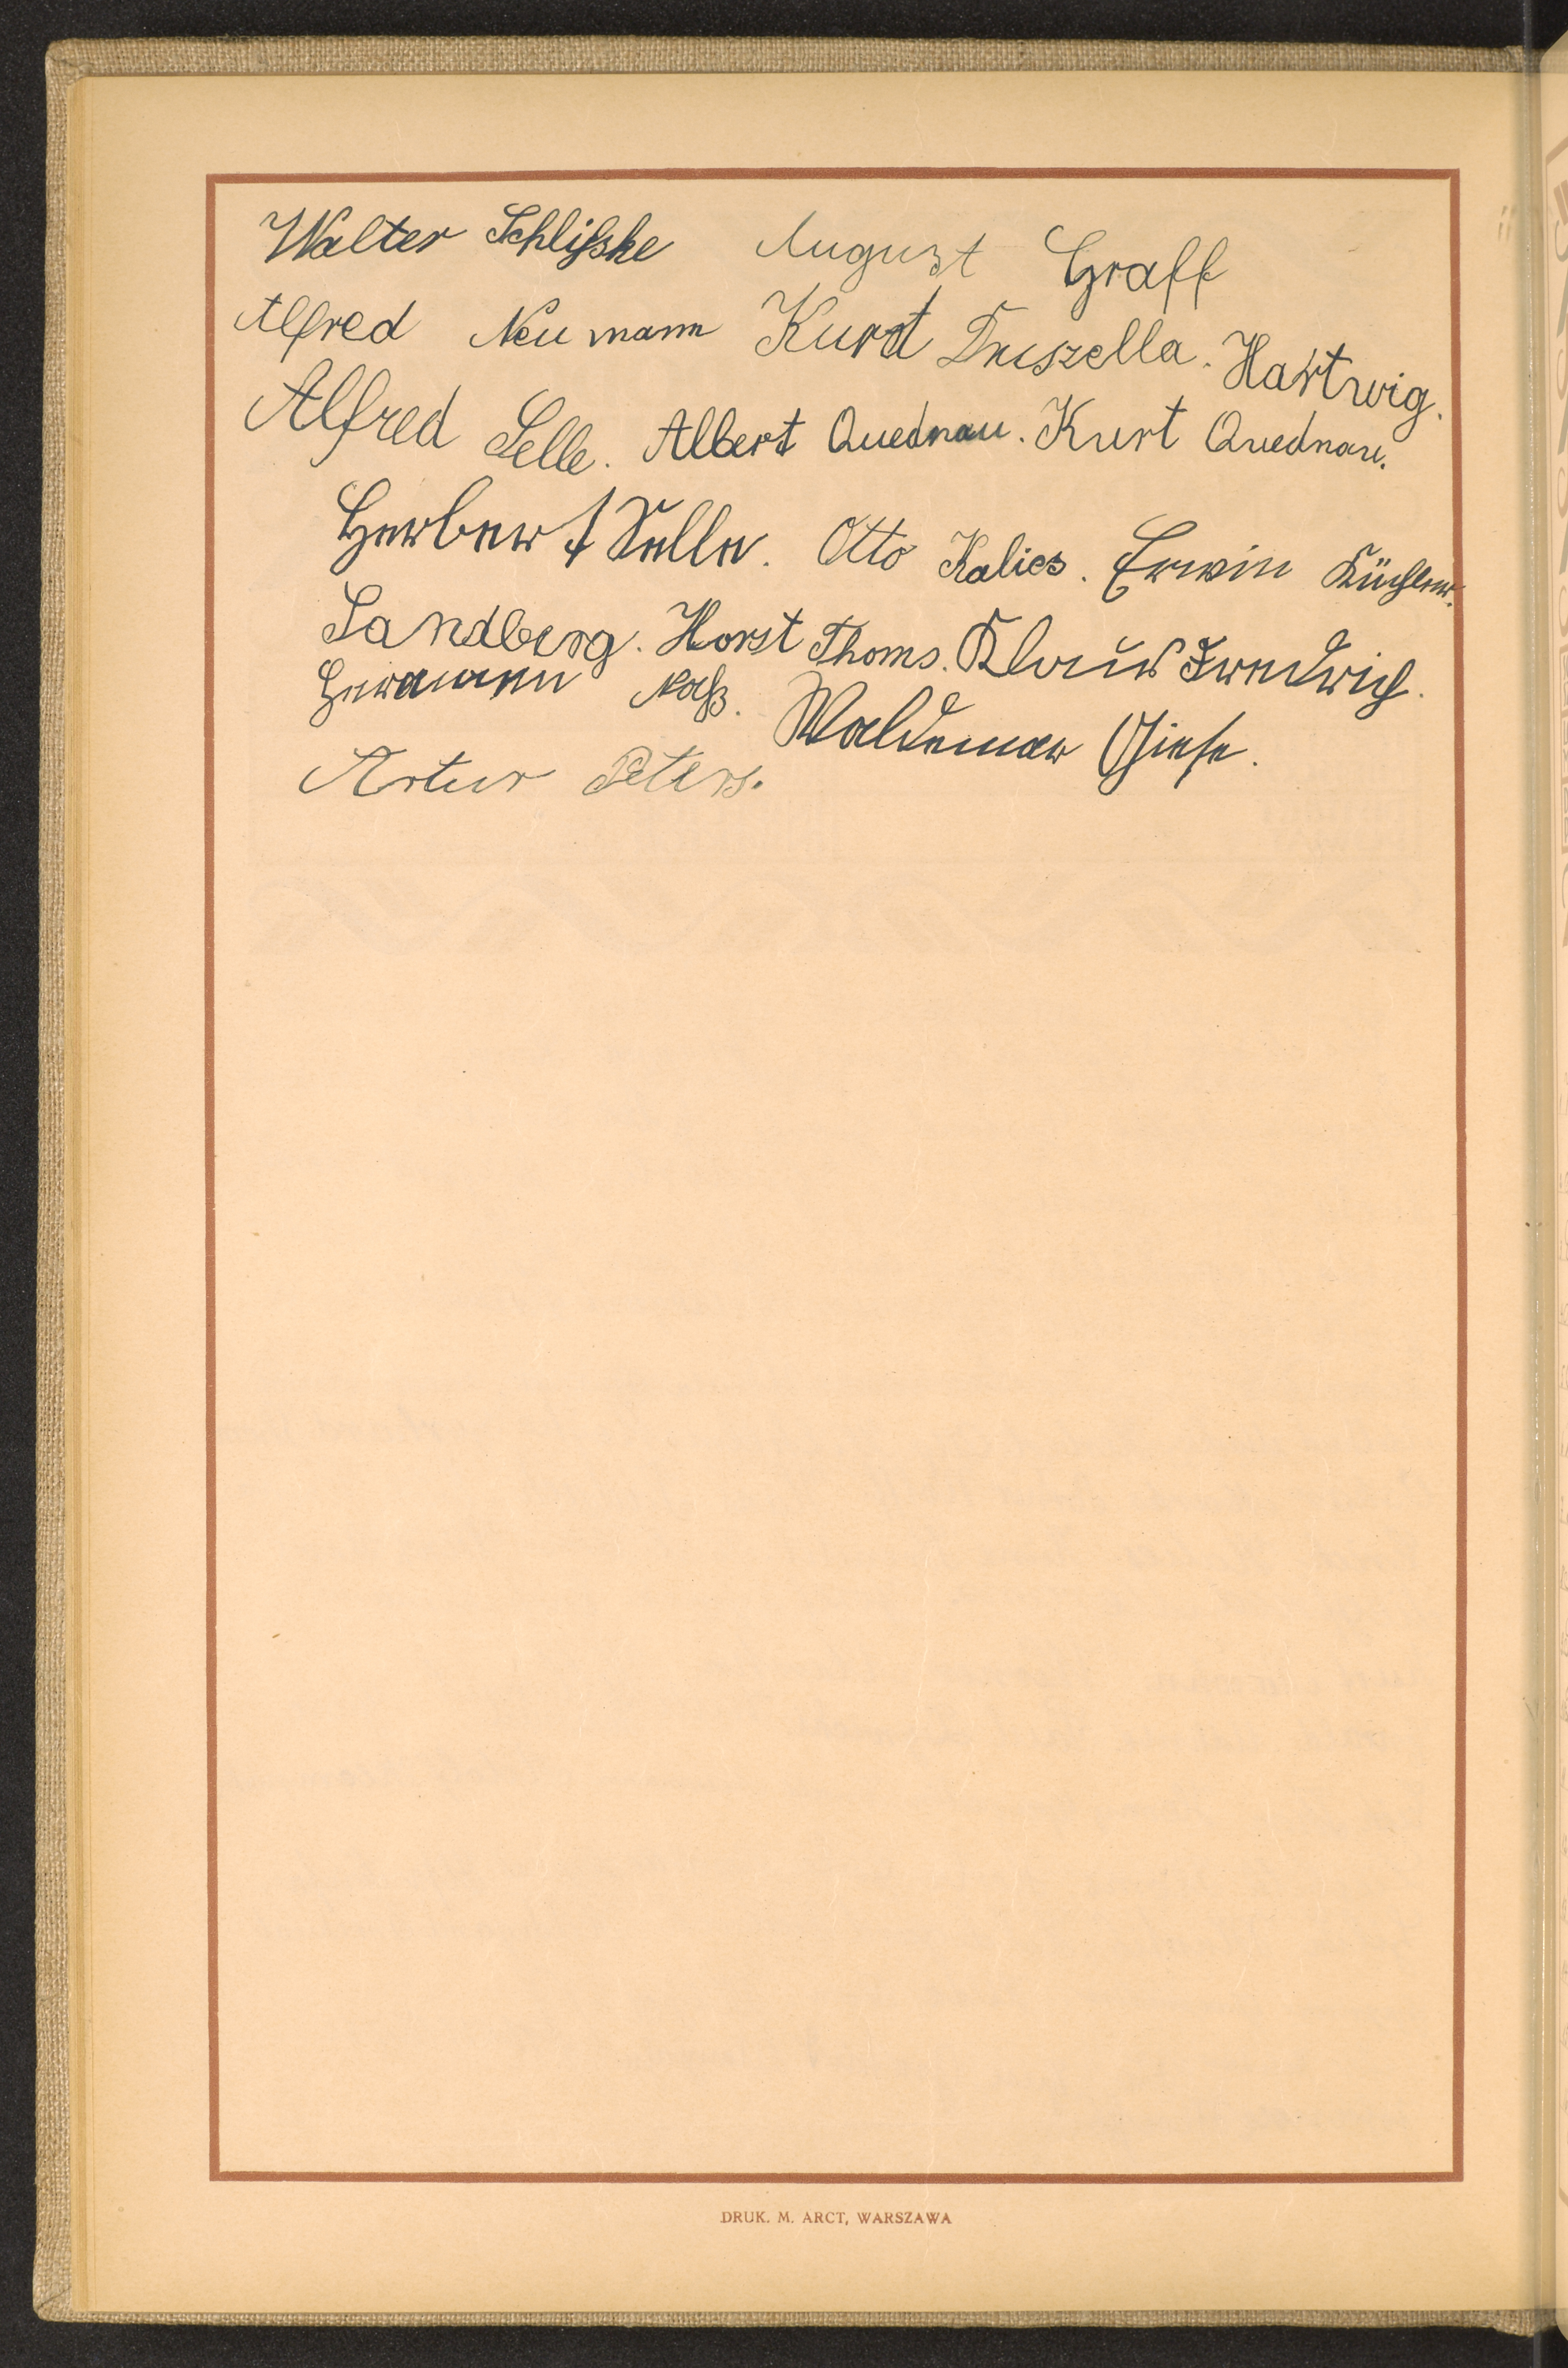 Walter Schlifske August Graff
Alfred Neumann Kurt Duszella. Hartwig.
Alfred Selle. Albert Quednau. Kurt Quednau.
Herbert Selle. Otto Kalies. Erwin Küchler.
Sandberg. Horst Thoms. Klaus Friedrich.
Hermann Naß. Waldemar Giese.
Artur Peters.
DRUK. M. ARCT, WARSZAWA